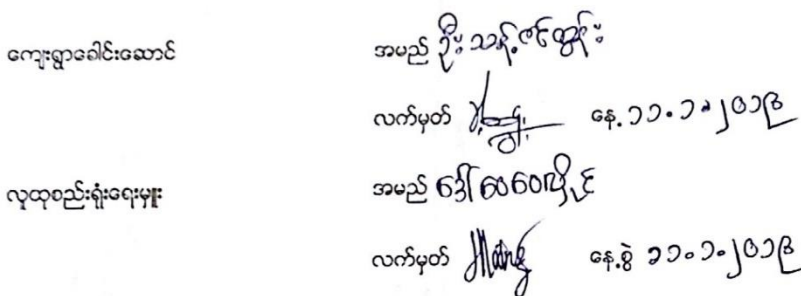 ကျေးရွာခေါင်းဆောင် အမည် ဦးသန့်ဇင်ထွန်း
လက်မှတ် နေ့ ၁၁.၁.၂၀၁၉
လူထုစည်းရုံးရေးမှူး အမည် ဒေါ်ဝေဝေလှိုင်
လက်မှတ် နေ့စွဲ ၁၁.၁.၂၀၁၉